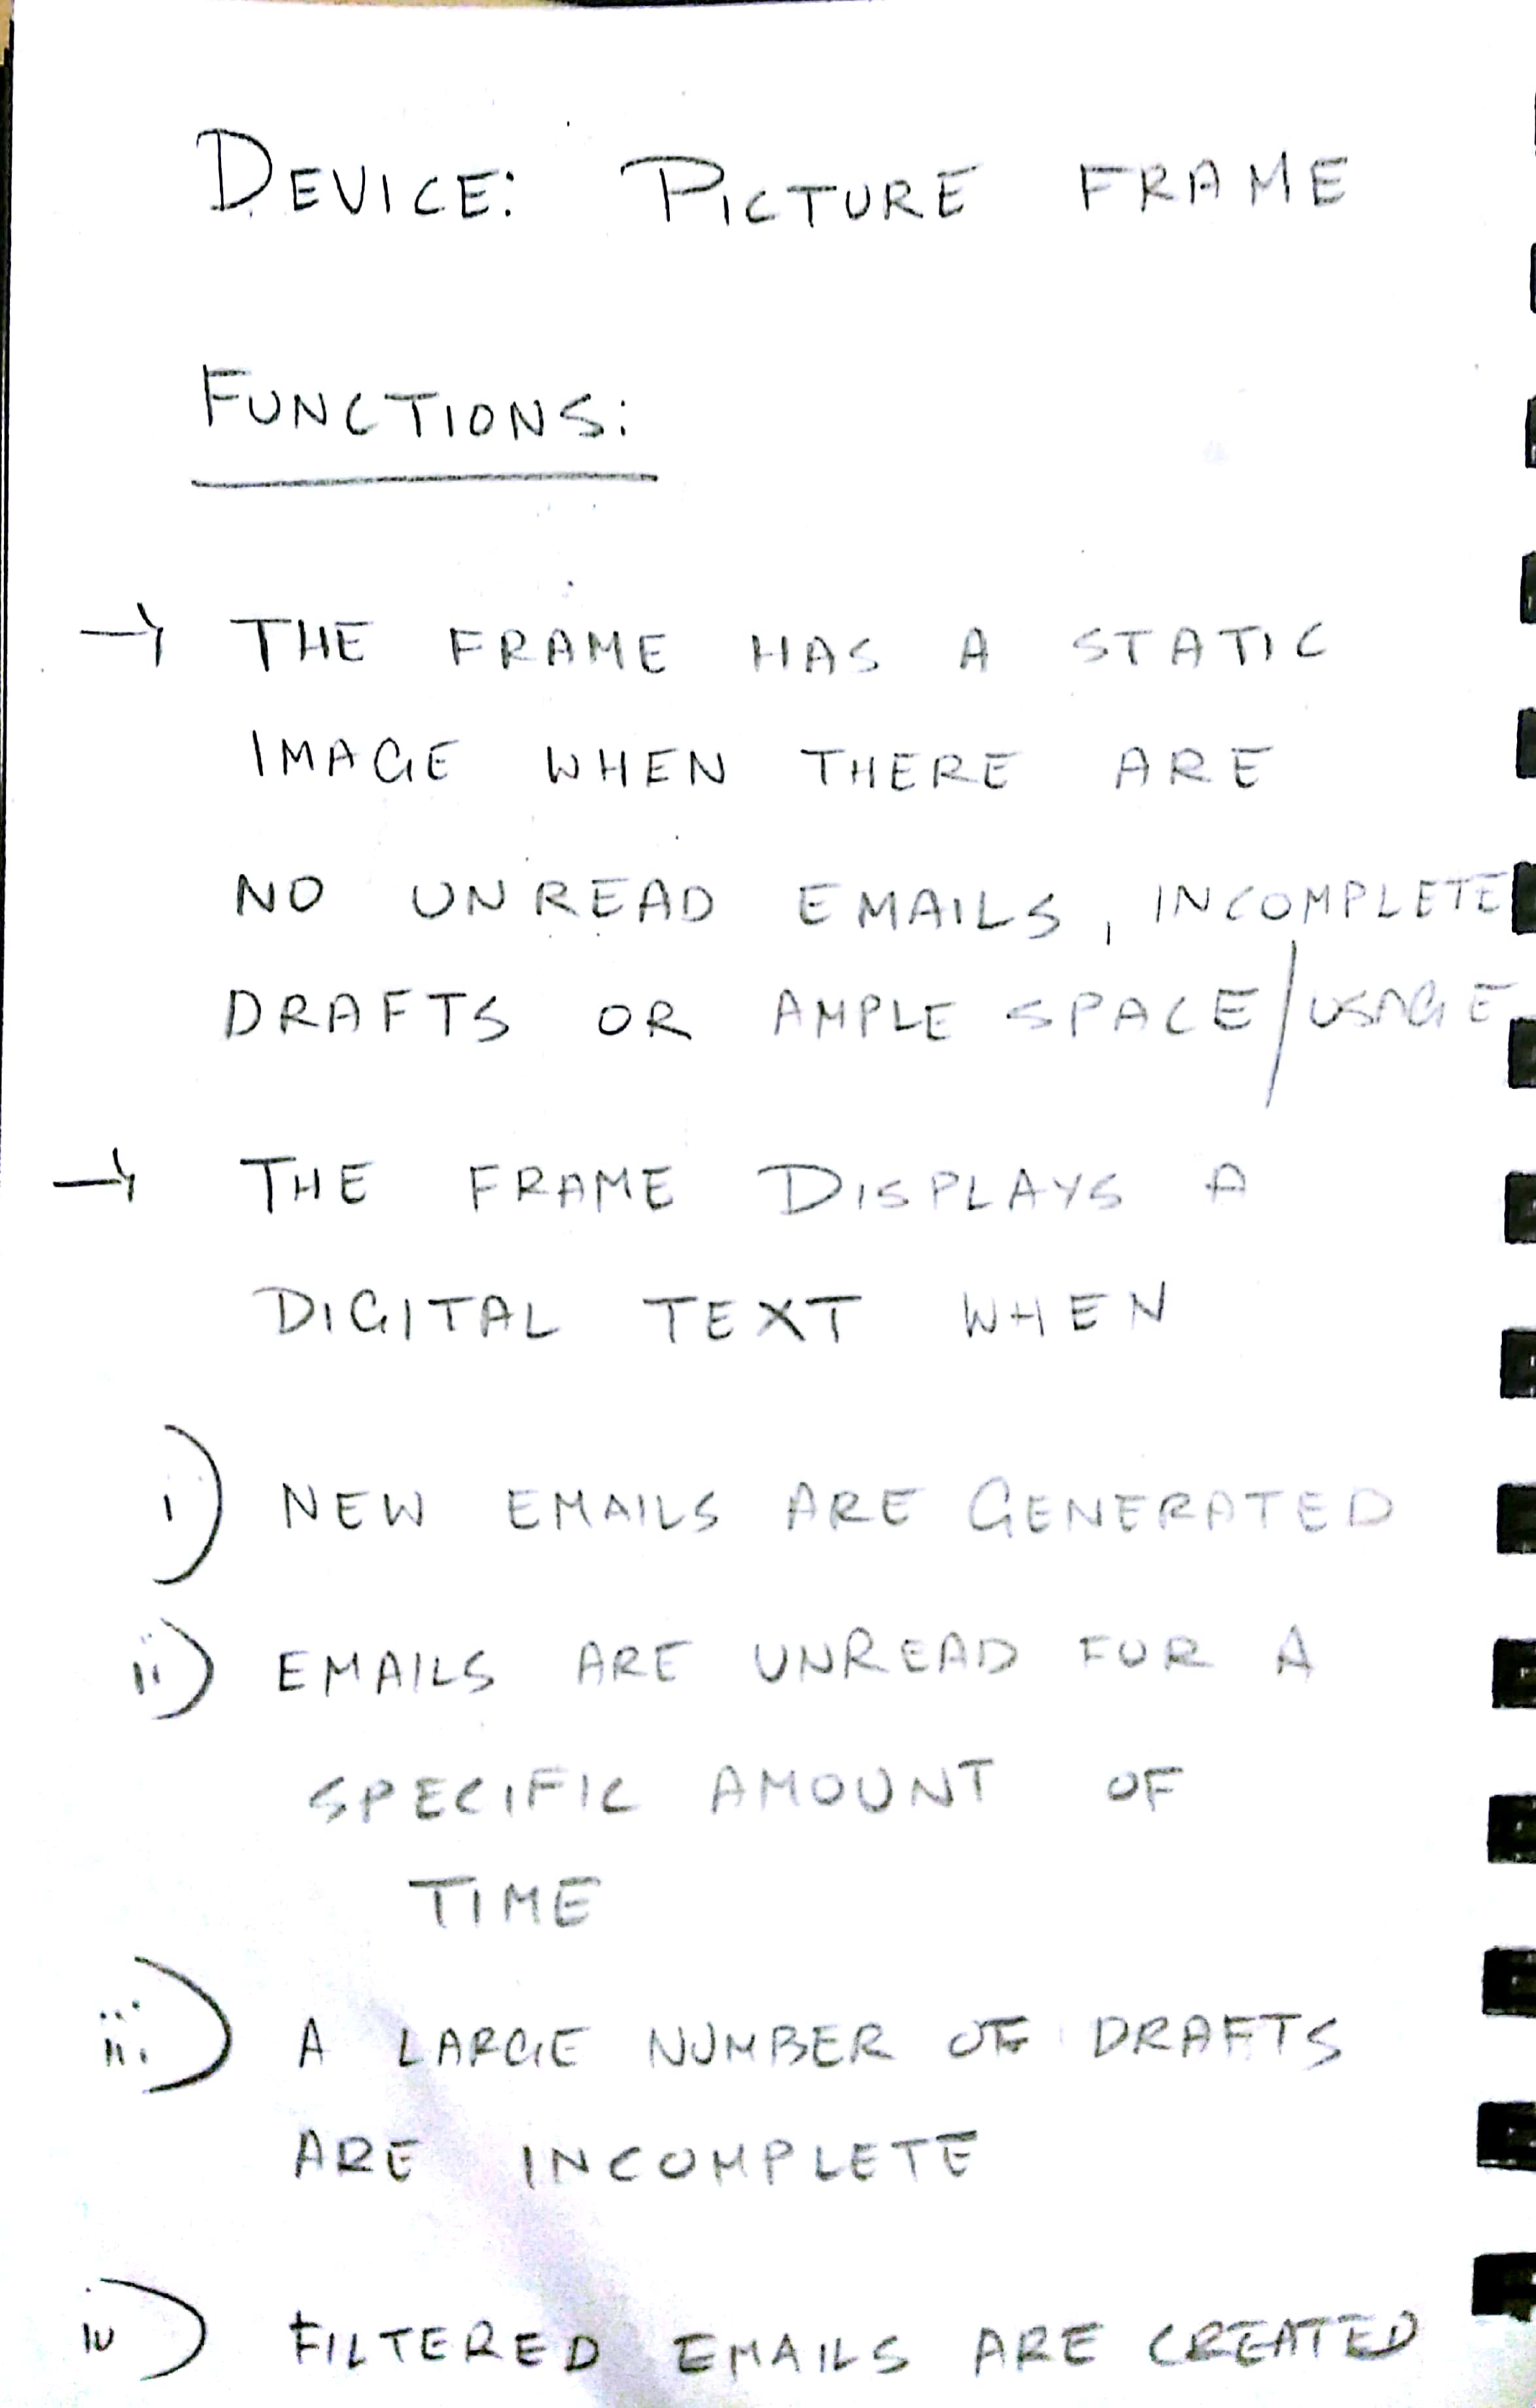 DEVICE: PICTURE FRAME
FUNCTIONS:
→ THE FRAME HAS A STATIC
IMAGE WHEN THERE ARE
NO UNREAD EMAILS, INCOMPLETE
DRAFTS OR AMPLE SPACE/USAGE
→ THE FRAME DISPLAYS A
DIGITAL TEXT WHEN
i) NEW EMAILS ARE GENERATED
ii) EMAILS ARE UNREAD FOR A
SPECIFIC AMOUNT OF
TIME
iii) A LARGE NUMBER OF DRAFTS
ARE INCOMPLETE
iv) FILTERED EMAILS ARE CREATED